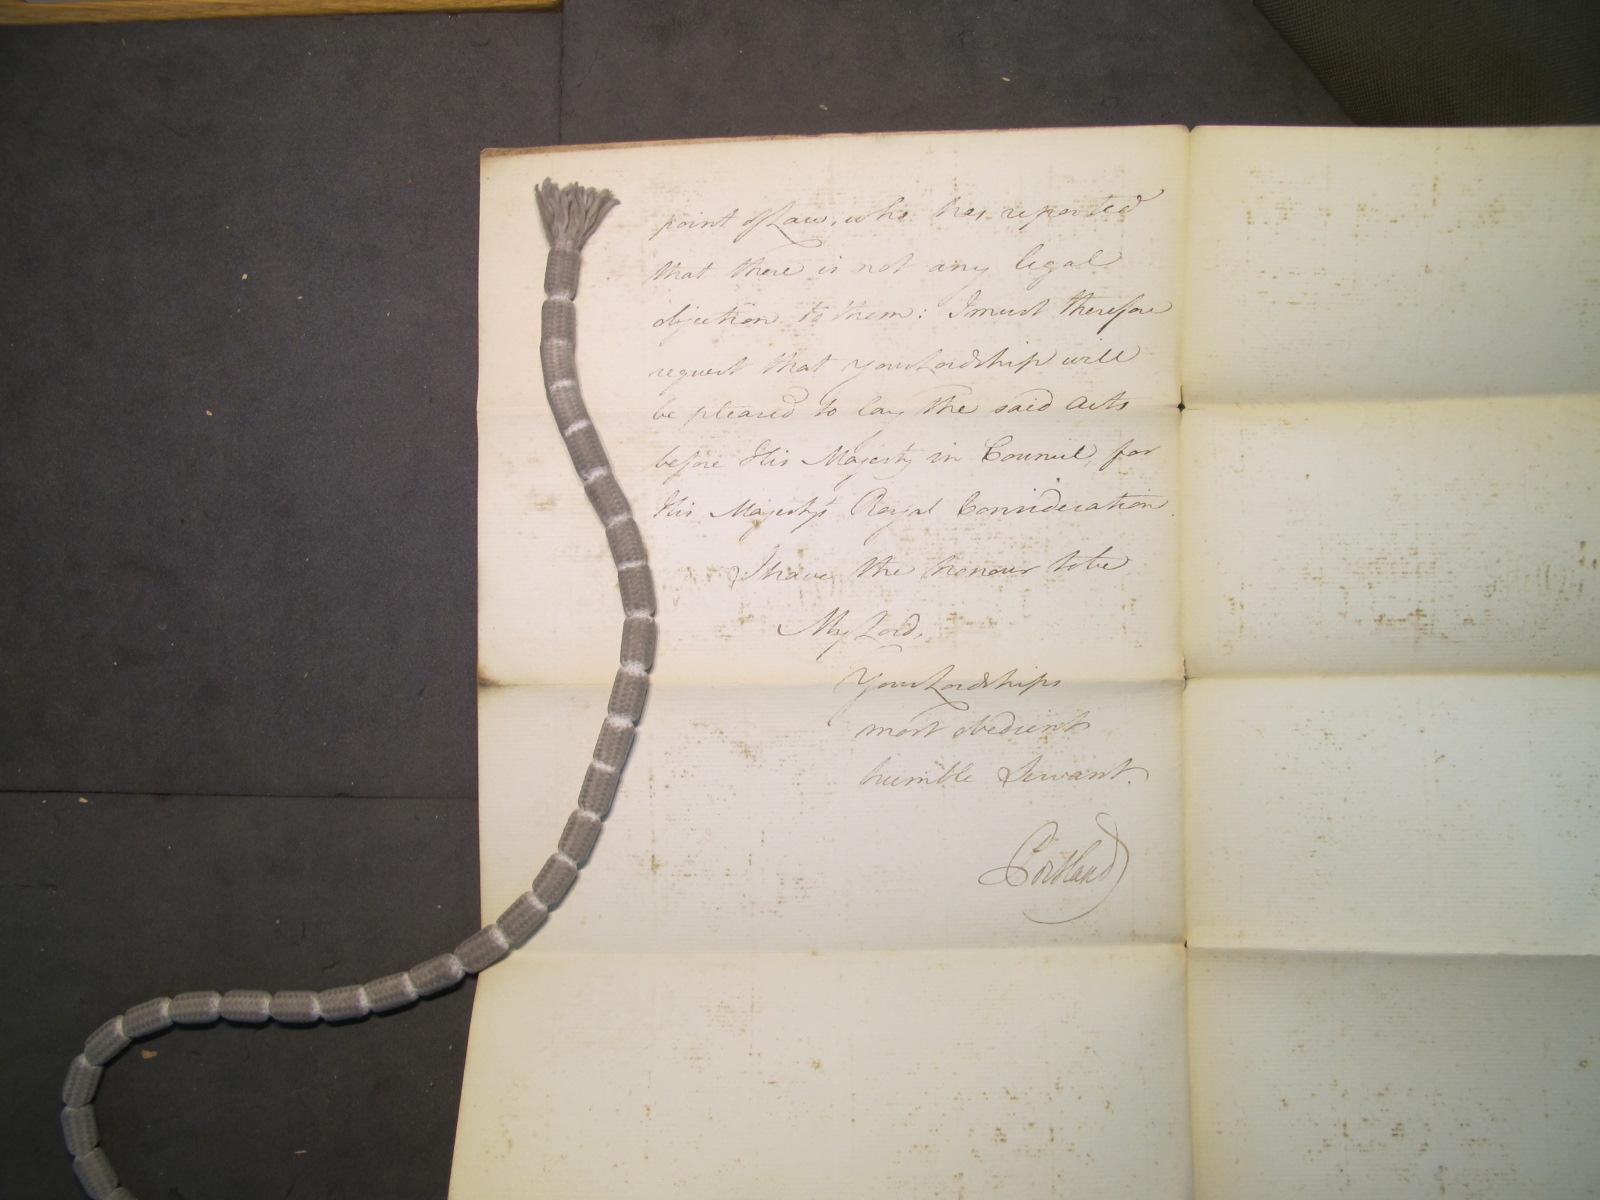 point of Law, who has reported
that there is not any legal
objection to them: I must therefore
request that Your Lordship will
be pleased to lay the said Acts
before His Majesty in Council, for
His Majesty's Royal Consideration.
I have the honour to be
My Lord,
Your Lordships
most obedient
humble Servant.
Portland